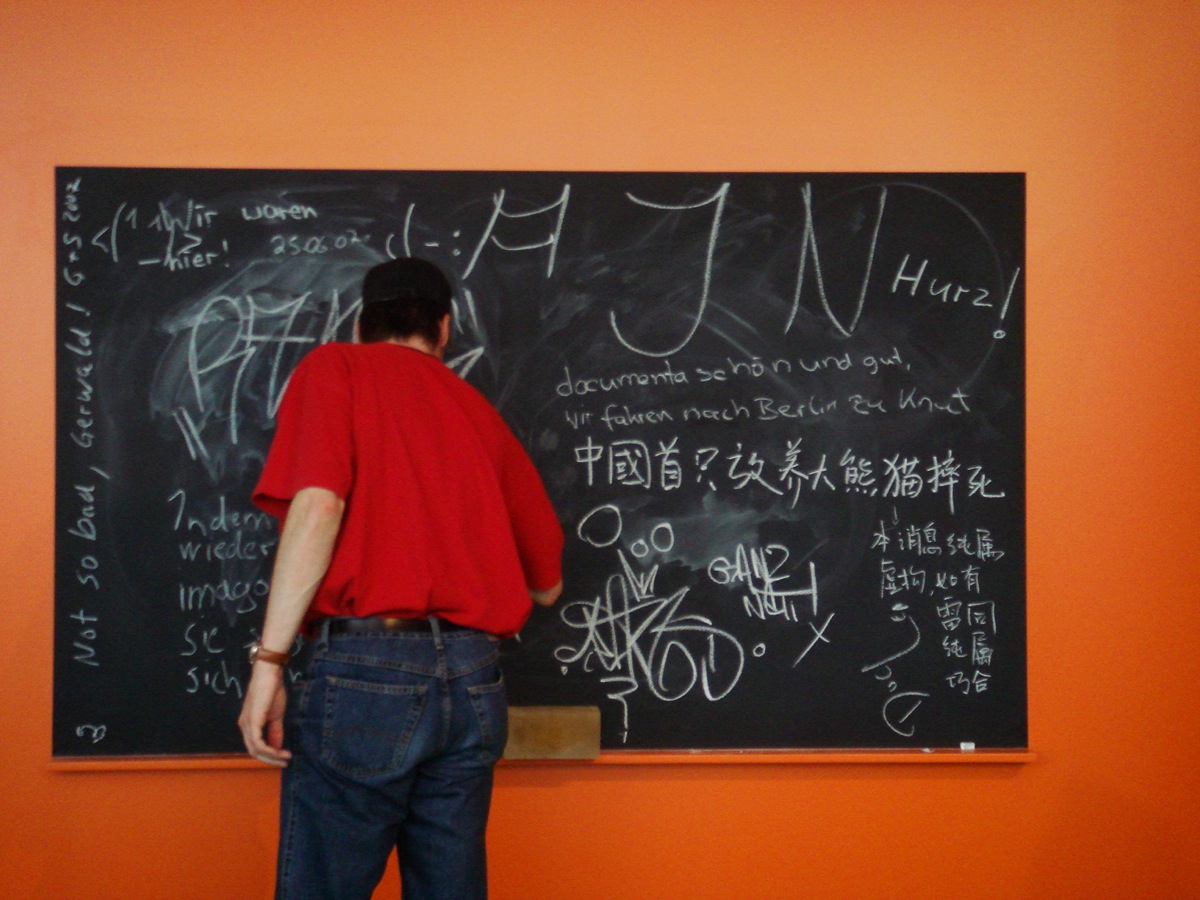 Not so bad, Gerwald! G+S 2007
Wir waren
hier! 25.06.07
(-:
A J N
Hurz!
documenta schön und gut,
wir fahren nach Berlin zu Knut
中國首只放养大熊猫摔死
本消息纯属
虚构,如有
雷同
纯属
巧合
Indem
wieder
imago
sie
sich
GANZ